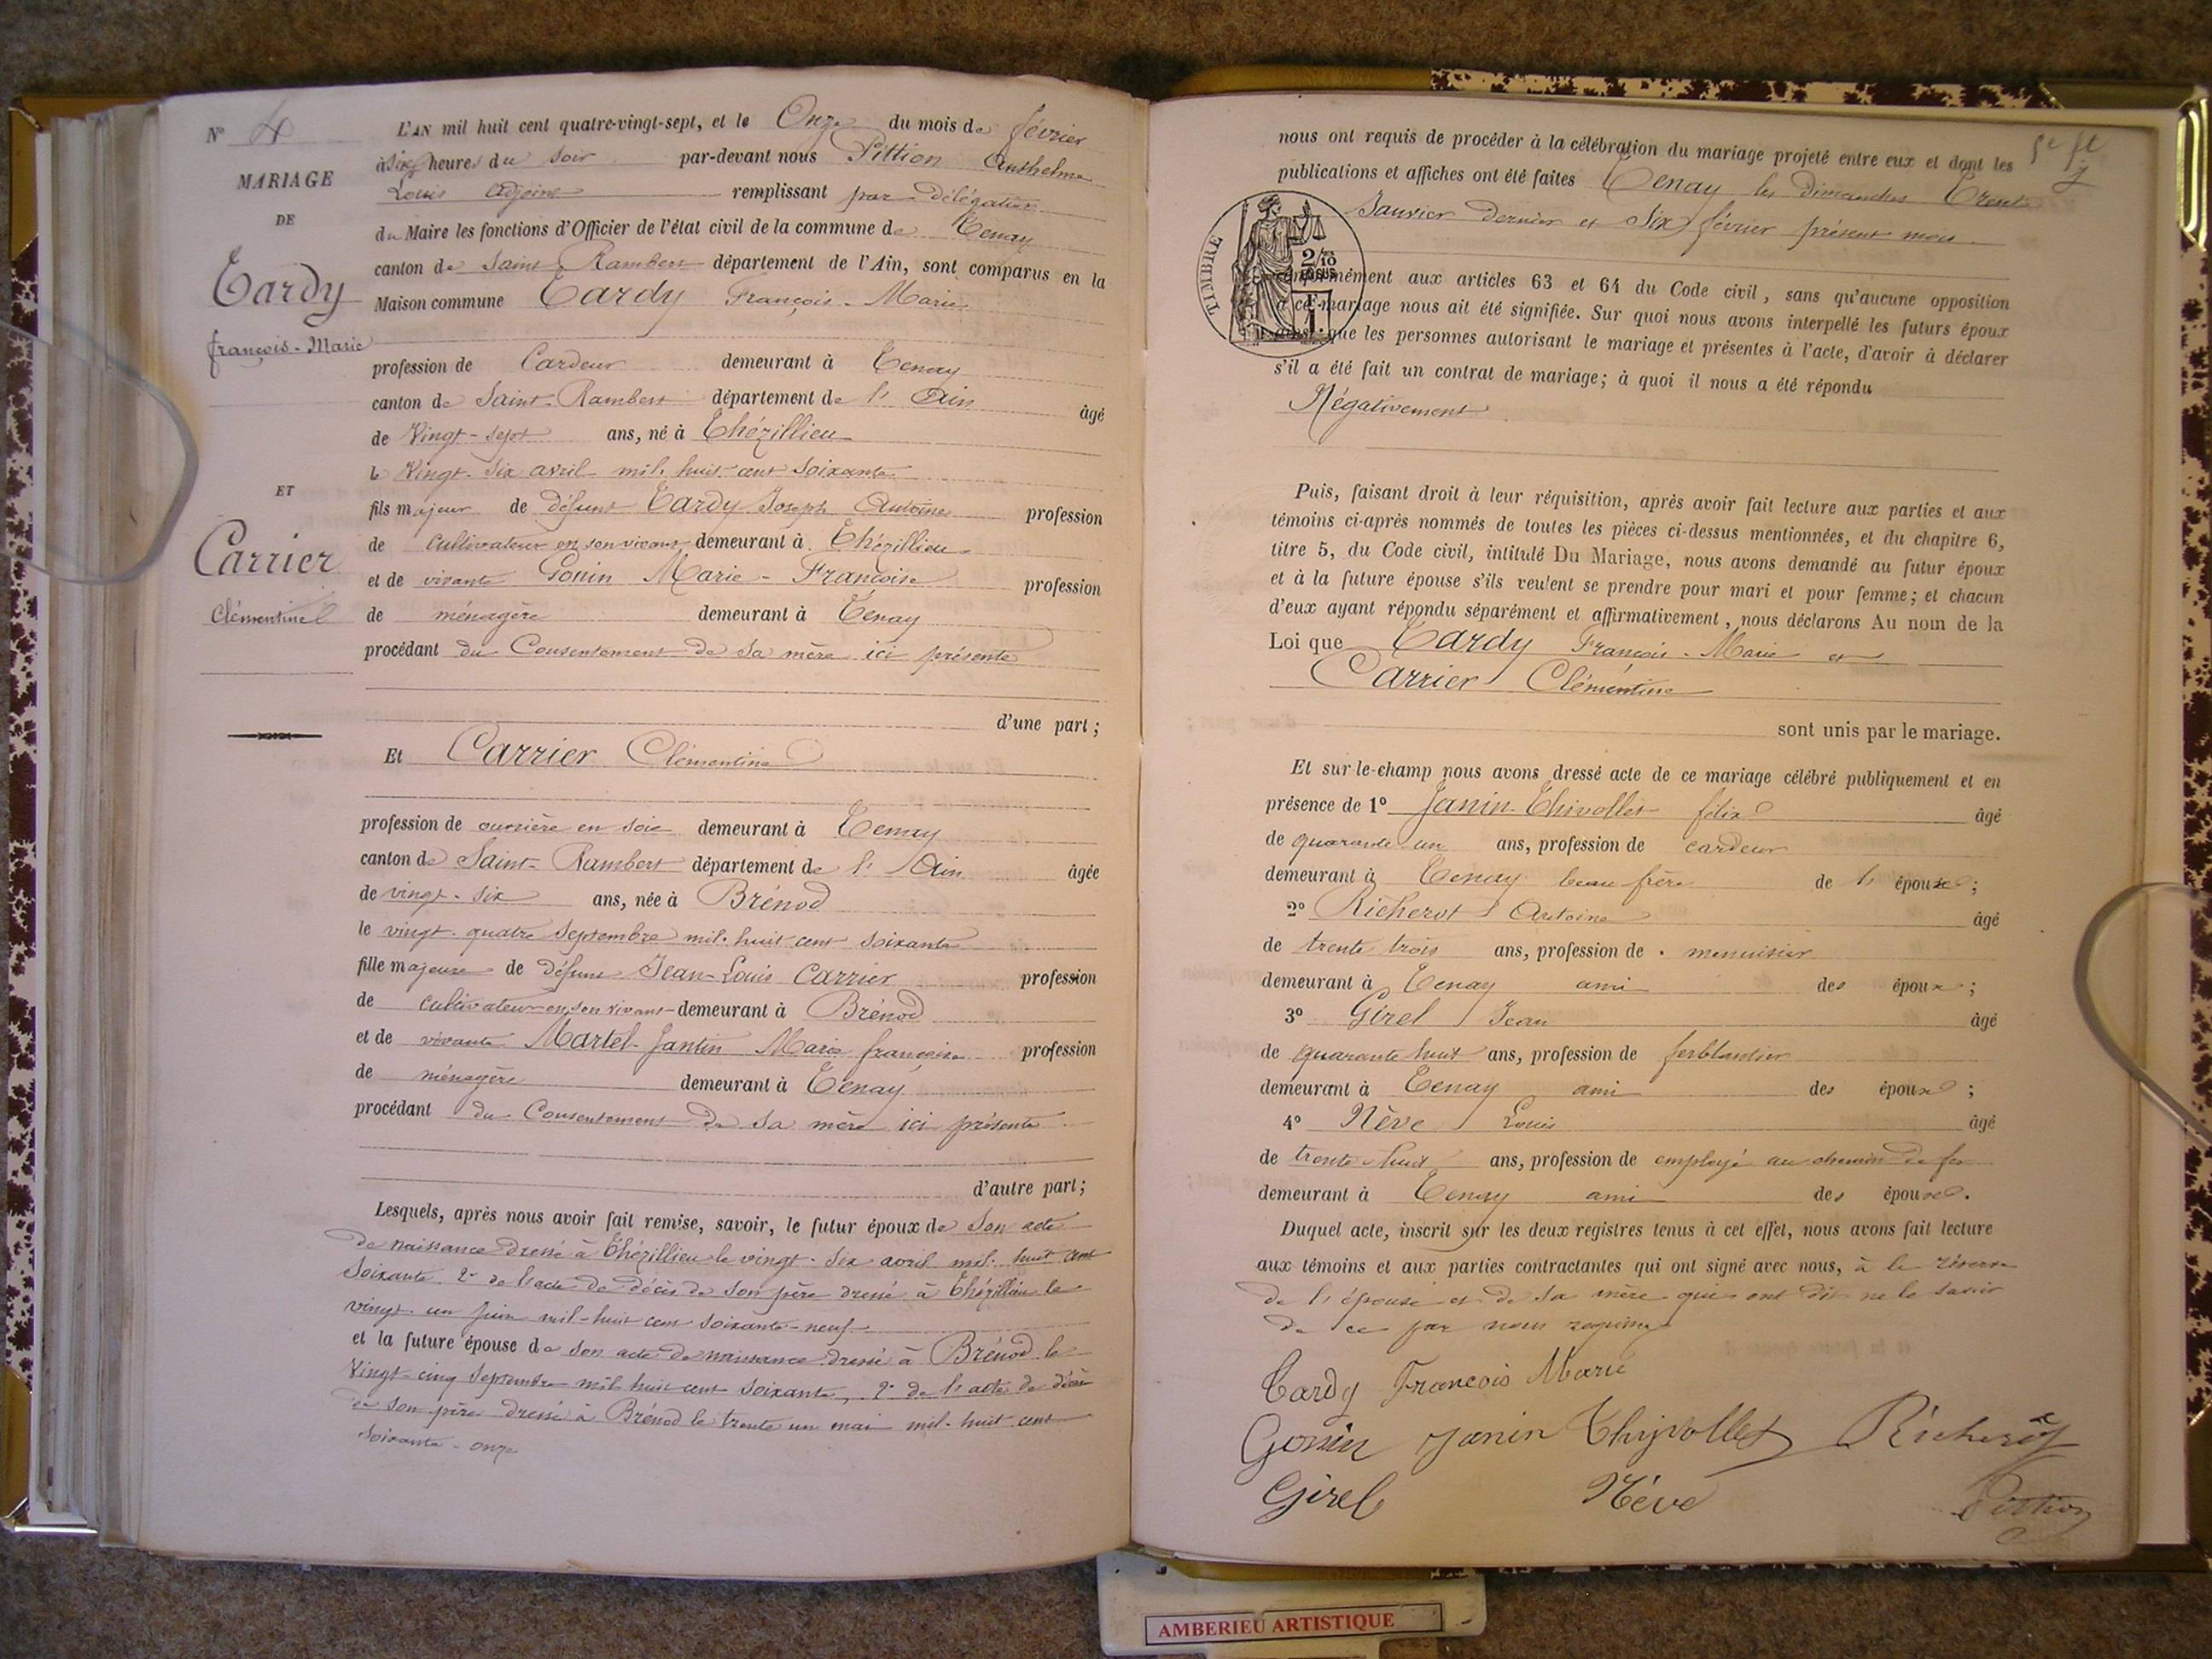 N° 4
MARIAGE
DE
Tardy
françois-Marie
ET
Carrier
Clémentine
L'AN mil huit cent quatre-vingt-sept, et le Onze du mois de février
à six heures du soir par-devant nous Pittion Anthelme
Louis adjoint remplissant par délégation
du Maire les fonctions d'Officier de l'état civil de la commune de Tenay
canton de Saint-Rambert département de l'Ain, sont comparus en la
Maison commune Tardy François-Marie
profession de Cardeur demeurant à Tenay
canton de Saint-Rambert département de l'Ain âgé
de Vingt-sept ans, né à Thézillieu
le Vingt-six avril mil-huit cent soixante
fils majeur de défunt Tardy Joseph Antoine profession
de cultivateur en son vivant demeurant à Thézillieu
et de vivante Gonin Marie-Françoise profession
de ménagère demeurant à Tenay
procédant du Consentement de sa mère ici présente
d'une part;
Et Carrier Clémentine
profession de ouvrière en soie demeurant à Tenay
canton de Saint-Rambert département de l'Ain âgée
de vingt-six ans, née à Brénod
le vingt-quatre septembre mil-huit cent soixante
fille majeure de défunt Jean-Louis Carrier profession
de cultivateur en son vivant demeurant à Brénod
et de vivante Martel-Jantin Marie françoise profession
de ménagère demeurant à Tenay
procédant du Consentement de sa mère ici présente
d'autre part;
Lesquels, après nous avoir fait remise, savoir, le futur époux de son acte
de naissance dressé à Thézillieu le vingt-six avril mil-huit cent
soixante, 2° de l'acte de décès de son père dressé à Thézillieu le
vingt-un juin mil-huit cent soixante-neuf
et la future épouse de son acte de naissance dressé à Brénod le
Vingt-cinq septembre mil huit cent soixante, 2° de l'acte de décès
de son père dressé à Brénod le trente un mai mil-huit cent
soixante-onze
nous ont requis de procéder à la célébration du mariage projeté entre eux et dont les
publications et affiches ont été faites Tenay les dimanches Trente
Janvier dernier et Six février présent mois
TIMBRE
2/10
EN SUS
conformément aux articles 63 et 64 du Code civil, sans qu'aucune opposition
à ce mariage nous ait été signifiée. Sur quoi nous avons interpellé les futurs époux
ainsi que les personnes autorisant le mariage et présentes à l'acte, d'avoir à déclarer
s'il a été fait un contrat de mariage; à quoi il nous a été répondu
Négativement
Puis, faisant droit à leur réquisition, après avoir fait lecture aux parties et aux
témoins ci-après nommés de toutes les pièces ci-dessus mentionnées, et du chapitre 6,
titre 5, du Code civil, intitulé Du Mariage, nous avons demandé au futur époux
et à la future épouse s'ils veulent se prendre pour mari et pour femme; et chacun
d'eux ayant répondu séparément et affirmativement, nous déclarons Au nom de la
Loi que Tardy François-Marie et
Carrier Clémentine
sont unis par le mariage.
Et sur-le-champ nous avons dressé acte de ce mariage célébré publiquement et en
présence de 1° Janin-Thivollet félix âgé
de quarante un ans, profession de cardeur
demeurant à Tenay beau frère de l'épouse;
2° Richerot Antoine âgé
de trente trois ans, profession de menuisier
demeurant à Tenay ami des époux;
3° Girel Jean âgé
de quarante huit ans, profession de ferblantier
demeurant à Tenay ami des époux;
4° Nève Louis âgé
de trente-huit ans, profession de employé au chemin de fer
demeurant à Tenay ami des époux.
Duquel acte, inscrit sur les deux registres tenus à cet effet, nous avons fait lecture
aux témoins et aux parties contractantes qui ont signé avec nous, à la réserve
de l'épouse et de sa mère qui ont dit ne le savoir
de ce par nous requise
Tardy François Marie
Gonin Janin Thivollet Richerot
Girel Néve Pittion
AMBERIEU ARTISTIQUE